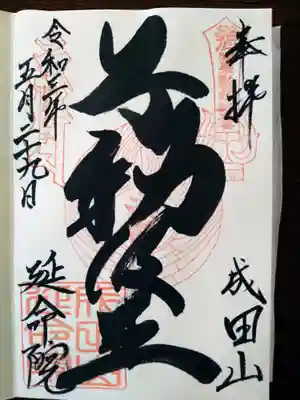 奉拝
成田山
不動堂
令和三年
五月二十九日
延命院